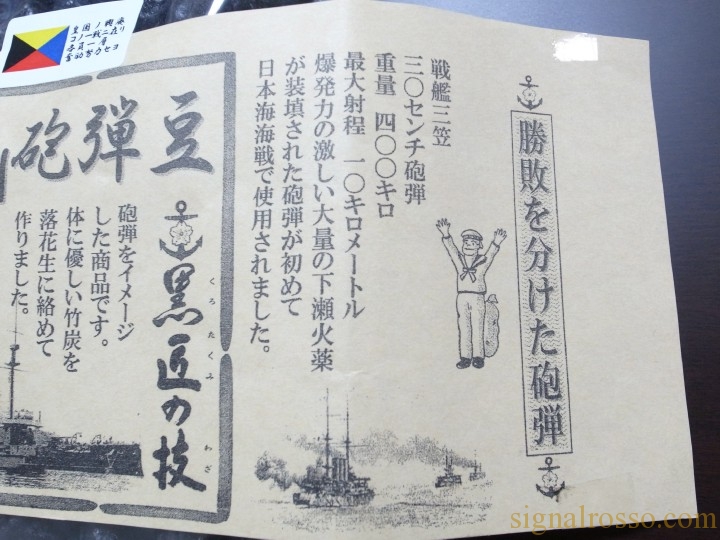 勝敗を分けた砲弾
戦艦三笠
三〇センチ砲弾
重量 四〇〇キロ
最大射程 一〇キロメートル
爆発力の激しい大量の下瀬火薬
が装填された砲弾が初めて
日本海海戦で使用されました。
砲彈豆
黒匠の技
くろたくみ
わざ
砲弾をイメージ
した商品です。
体に優しい竹炭を
落花生に絡めて
作りました。
皇国ノ興廃
コノ一戦ニ在リ
各員一層
奮励努力セヨ
signalrosso.com